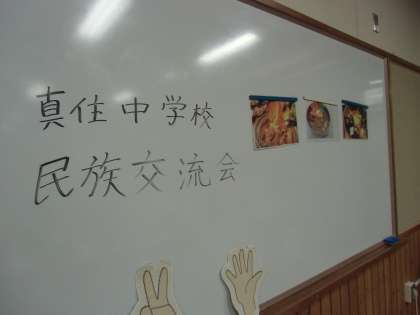 真住中学校
民族交流会